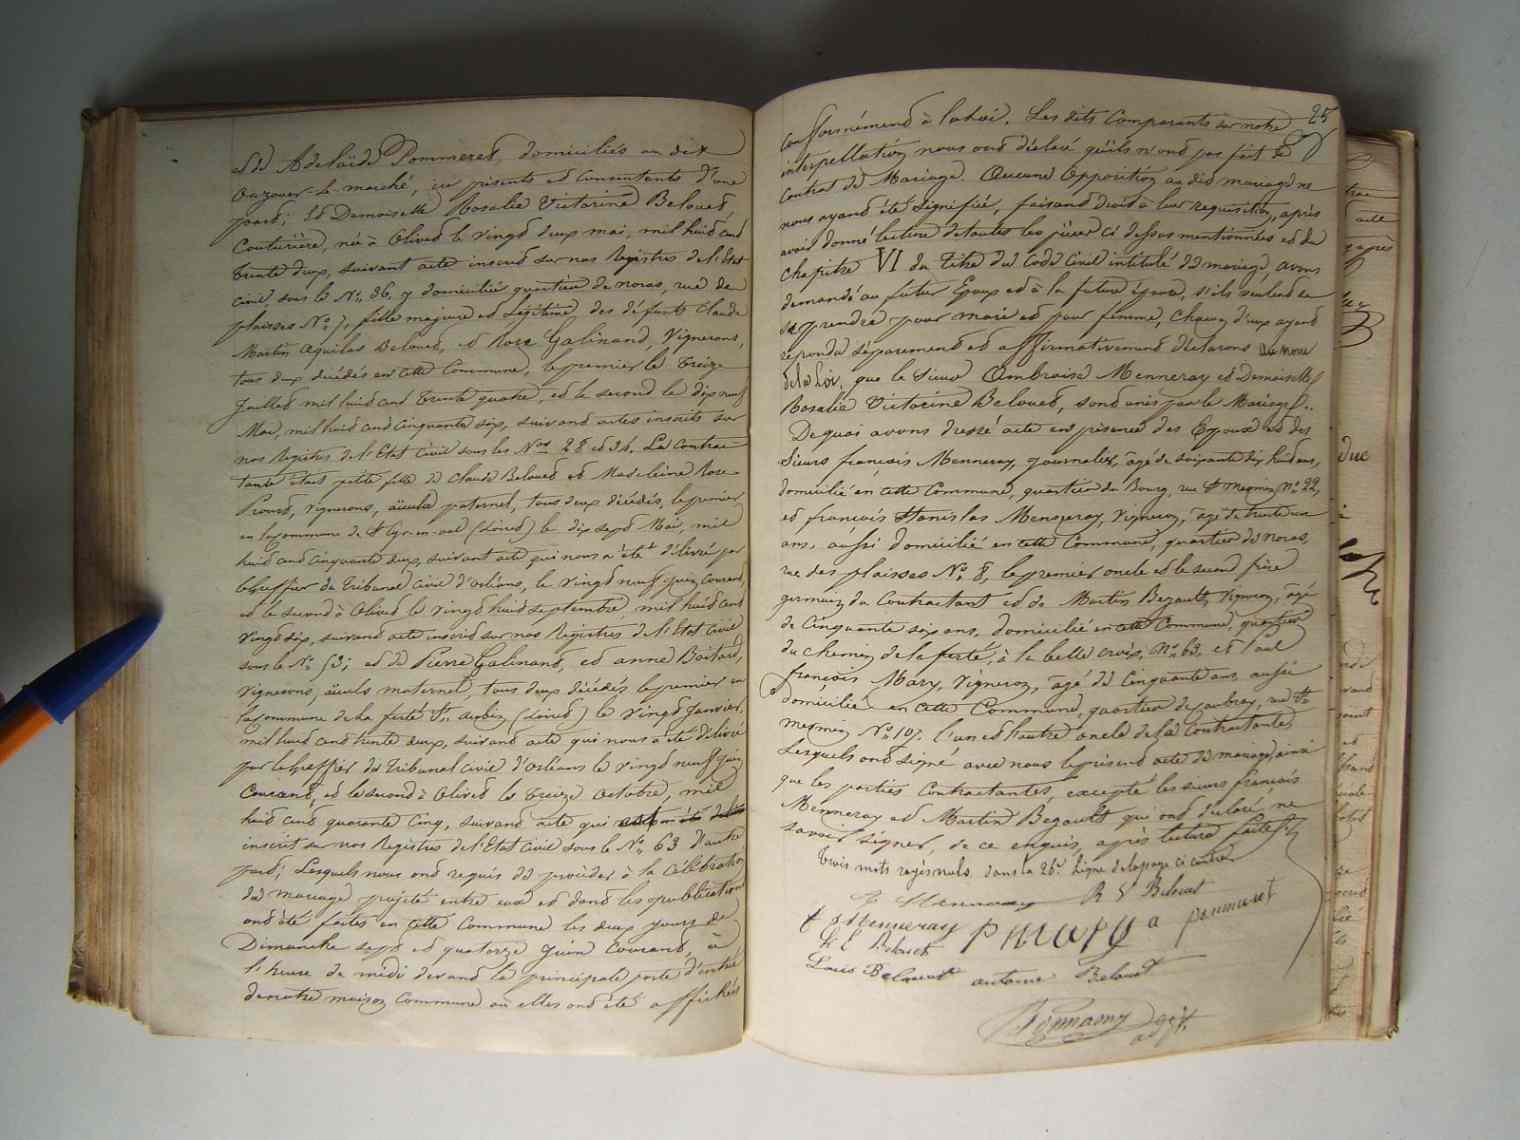 et de Adelaïde Pommeret, domiciliés au dit
Ouzouer-le-marché, ici présents et consentants d'une
part; Et Demoiselle Rosalie Victorine Belouet,
Couturière, née à Olivet le vingt deux mai, mil huit cent
trente deux, suivant acte inscrit sur nos Registres de l'Etat
civil sous le No. 36, y domiciliée quartier de noras, rue des
plaisses No. 7, fille majeure et Légitime des défunts Claude
Martin Aquilas Belouet, et Rose Galinand, Vignerons,
tous deux décédés en cette Commune, le premier le treize
Juillet mil huit cent trente quatre, et le second le dix neuf
Mai, mil huit cent cinquante six, suivant actes inscrits sur
nos Registres de l'Etat Civil sous les Nos 28 et 34. La Contrac-
tante étant petite fille de Claude Belouet et Madeleine Rose
Prout, Vignerons, aïeuls paternel, tous deux décédés, le premier
en la commune de St Cyr-en-val (Loiret) le dix sept Mai, mil
huit cent cinquante deux, suivant acte qui nous a été délivré par
le Greffier du Tribunal Civil d'Orléans, le vingt neuf Juin courant,
et le second à Olivet le vingt huit septembre mil huit cent
vingt six, suivant acte inscrit sur nos Registres de l'Etat Civil
sous le No. 53; et de Pierre Galinand, et anne Boitard,
Vignerons, aïeuls maternel, tous deux décédés le premier en
la commune de la ferté St. aubin (Loiret) le vingt Janvier,
mil huit cent trente deux, suivant acte qui nous a été délivré
par le Greffier du Tribunal Civil d'Orléans le vingt neuf Juin
Courant, et le second à Olivet le treize Octobre, mil
huit cent quarante cinq, suivant acte qui
inscrit sur nos Registres de l'Etat Civil sous le No. 63 D'autre
part; Lesquels nous ont requis de procéder à la Célébration
du mariage projeté entre eux et dont les publications
ont été faites en cette Commune les deux jours de
Dimanche sept et quatorze Juin Courant, à
l'heure de midi devant la principale porte d'entrée
de notre maison Commune où elles ont été affichées
25
conformément à la loi. Les dits Comparants sur notre
interpellation nous ont déclaré qu'ils n'ont pas fait de
Contrat de Mariage. Aucune Opposition au dit mariage ne
nous ayant été signifiée, faisant droit à leur requisition, après
avoir donné lecture de toutes les pièces ci dessus mentionnées et du
Chapitre VI du Titre du Code Civil intitulé du mariage, avons
demandé au futur Epoux et à la future épouse, s'ils veulent se
se prendre pour mari et pour femme, chacun d'eux ayant
répondu séparément et affirmativement déclarons au nom
de la Loi, que le Sieur Ambroise Menneray et Demoiselle
Rosalie Victorine Belouet, sont unis par le Mariage.
De quoi avons dressé acte en présence des Epoux et des
Sieurs françois Menneray, journalier, âgé de soixante dix huit ans,
domicilié en cette Commune, quartier du Bourg, rue St Mesmin, No. 22,
et françois Stanislas Menneray, Vigneron, âgé de trente un
ans, aussi domicilié en cette Commune, quartier de noras,
rue des plaisses No. 8, le premier oncle et le second frère
germain du Contractant et de Martin Begault, Vigneron, âgé
de Cinquante six ans, domicilié en cette Commune, quartier
du chemin de la ferté, à la belle croix, No. 63, et Paul
françois Mary, Vigneron, âgé de Cinquante ans, aussi
domicilié en cette Commune, quartier de aubray, rue St
mesmin No. 107. l'un et l'autre oncle de la contractante
Lesquels ont signé avec nous le présent acte de mariage, ainsi
que les parties Contractantes, excepté les sieurs françois
Menneray et Martin Begault qui ont déclaré, ne
savoir signer, de ce enquis, après lecture faite.
Trois mots rayés nuls dans la 26e. Ligne de la page ci contre
F Menneray R V Belouet
f S Menneray P mary a pommeret
L E Belouet
Louis Belouet antoine Belouet
adjt.